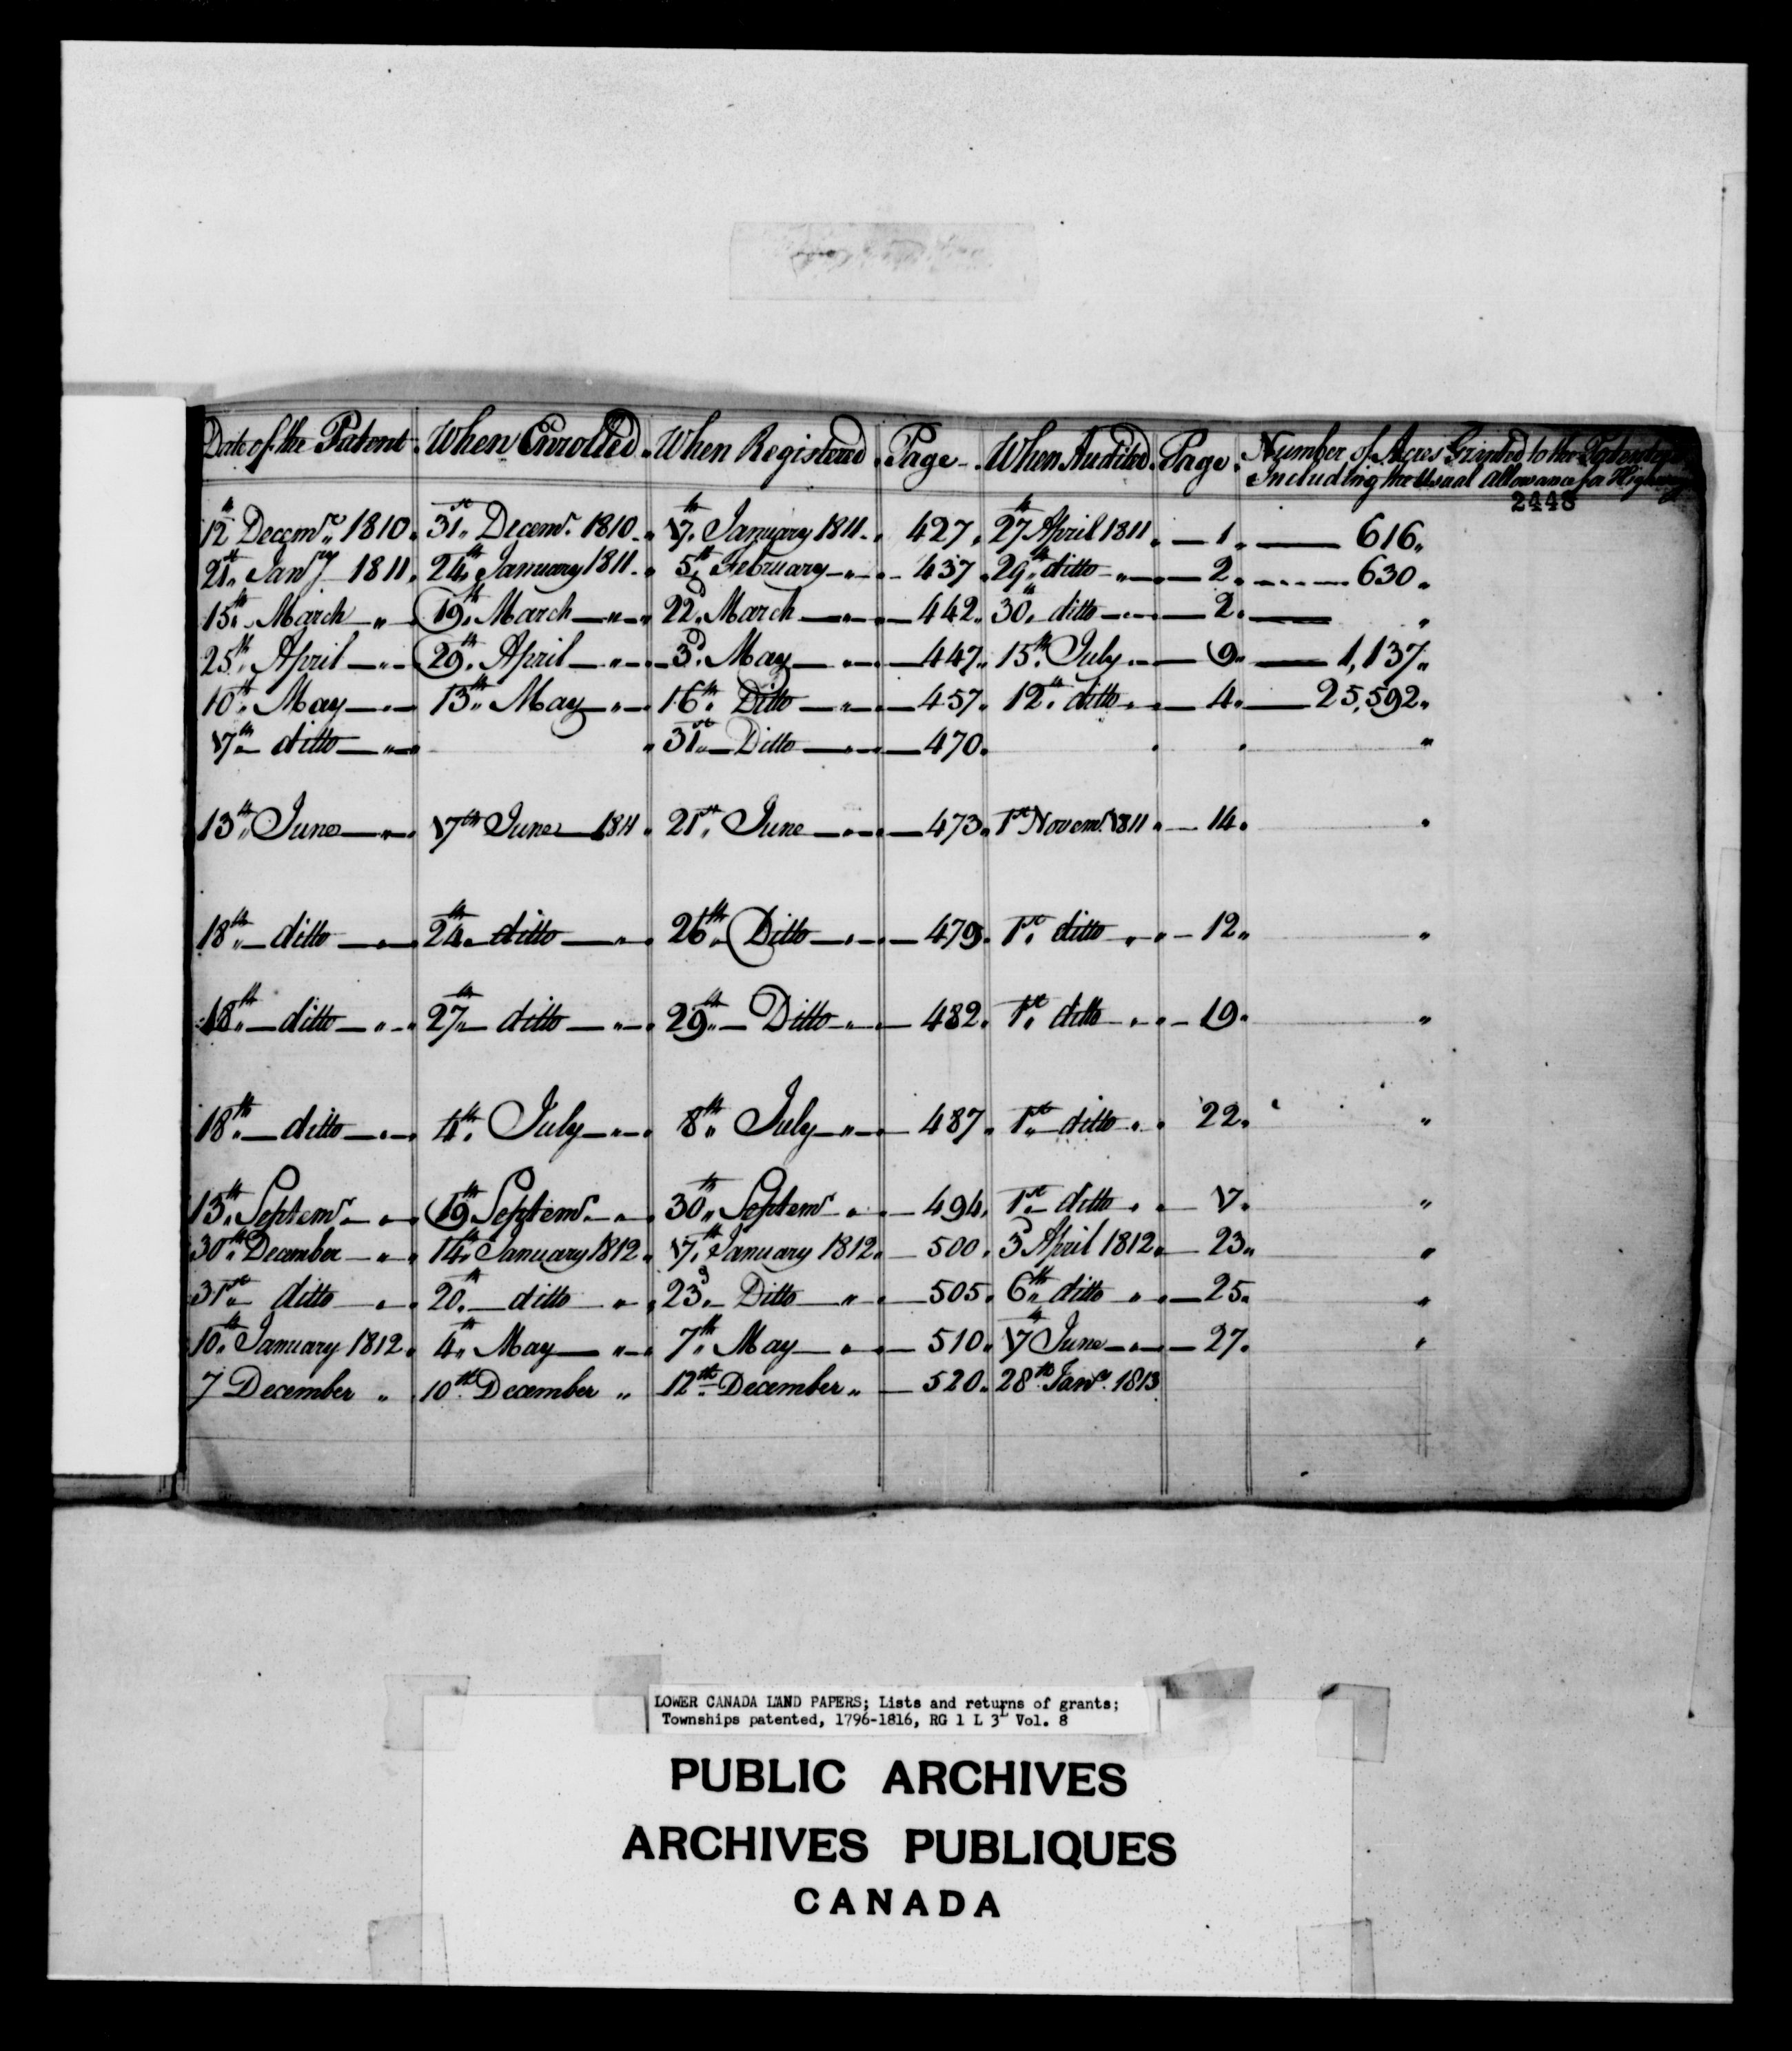 Date of the Patent. When Enrolled. When Registered. Page. When Audited. Page. Number of Acres Granted to the Patentees Including the Usual Allowance for Highways
2448
12th Decemr. 1810. 31st Decemr. 1810. 7th January 1811. 427. 27th April 1811. 1. 616.
21st Jany 1811. 24th January 1811. 5th February " 437. 29th ditto " 2. 630.
15th March " 19th March " 22d March " 442. 30th ditto " 2. "
25th April " 29th April " 3d May " 447. 15th July " 9. 1,137.
10th May " 13th May " 16th Ditto " 457. 12th ditto " 4. 25,592.
7th ditto " " 31st Ditto " 470. "
13th June " 7th June 1811. 21st June " 473. 1st Novemr. 1811. 14. "
18th ditto " 24th ditto " 26th Ditto " 479. 1st ditto " 12. "
18th ditto " 27th ditto " 29th Ditto " 482. 1st ditto " 19. "
18th ditto " 4th July " 8th July " 487. 1st ditto " 22. "
13th Septemr. " 19th Septemr. " 30th Septemr " 494. 1st ditto " 7. "
30th December " 14th January 1812. 7th January 1812. 500. 3d April 1812. 23. "
31st ditto " 20th ditto " 23d Ditto " 505. 6th ditto " 25. "
10th January 1812. 4th May " 7th May " 510. 7th June " 27. "
7 December " 10th December " 12th December " 520. 28th Jany. 1813
LOWER CANADA LAND PAPERS; Lists and returns of grants;
Townships patented, 1796-1816, RG 1 L 3L Vol. 8
PUBLIC ARCHIVES
ARCHIVES PUBLIQUES
CANADA